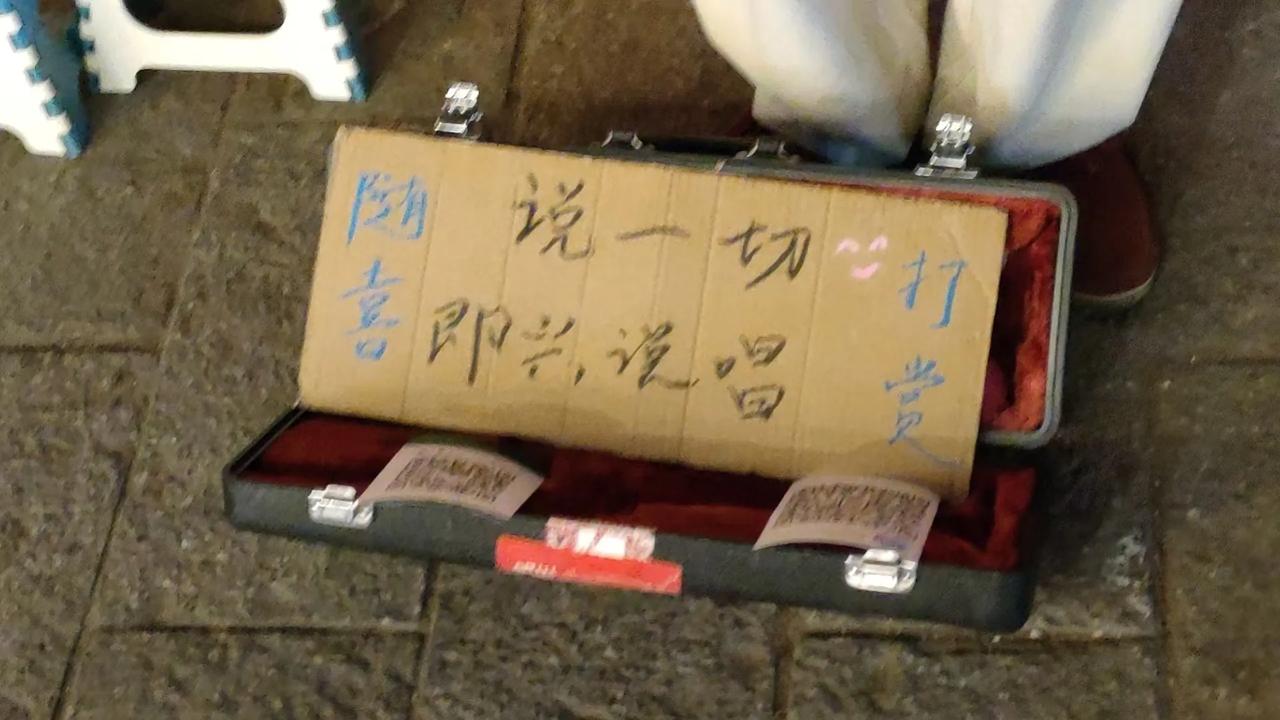 随喜
说一切
即兴说唱
打赏